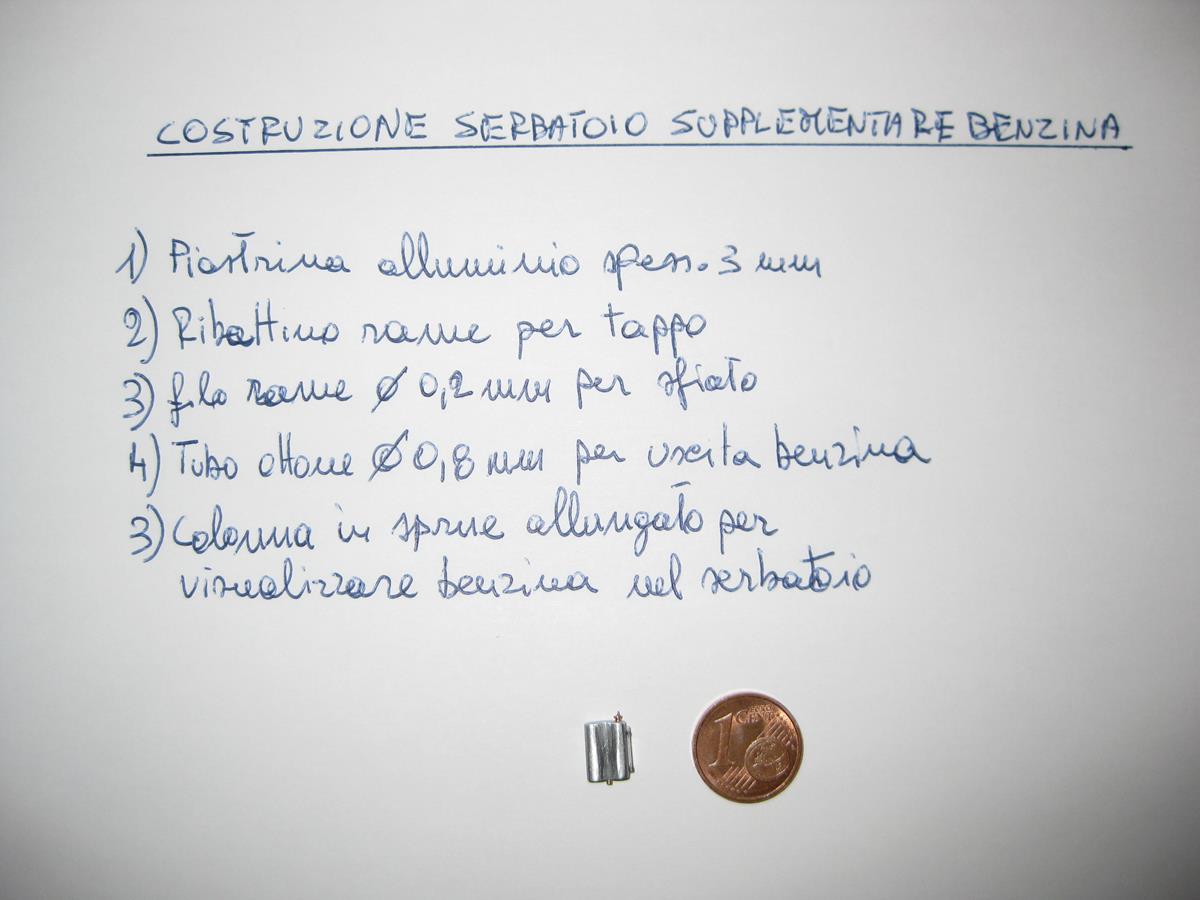 COSTRUZIONE SERBATOIO SUPPLEMENTARE BENZINA
1) Piastrina alluminio spess. 3 mm
2) Ribattino rame per tappo
3) filo rame Ø 0,2 mm per sfiato
4) Tubo ottone Ø 0,8 mm per uscita benzina
3) Colonna in sprue allungato per
visualizzare benzina nel serbatoio
1
CENT